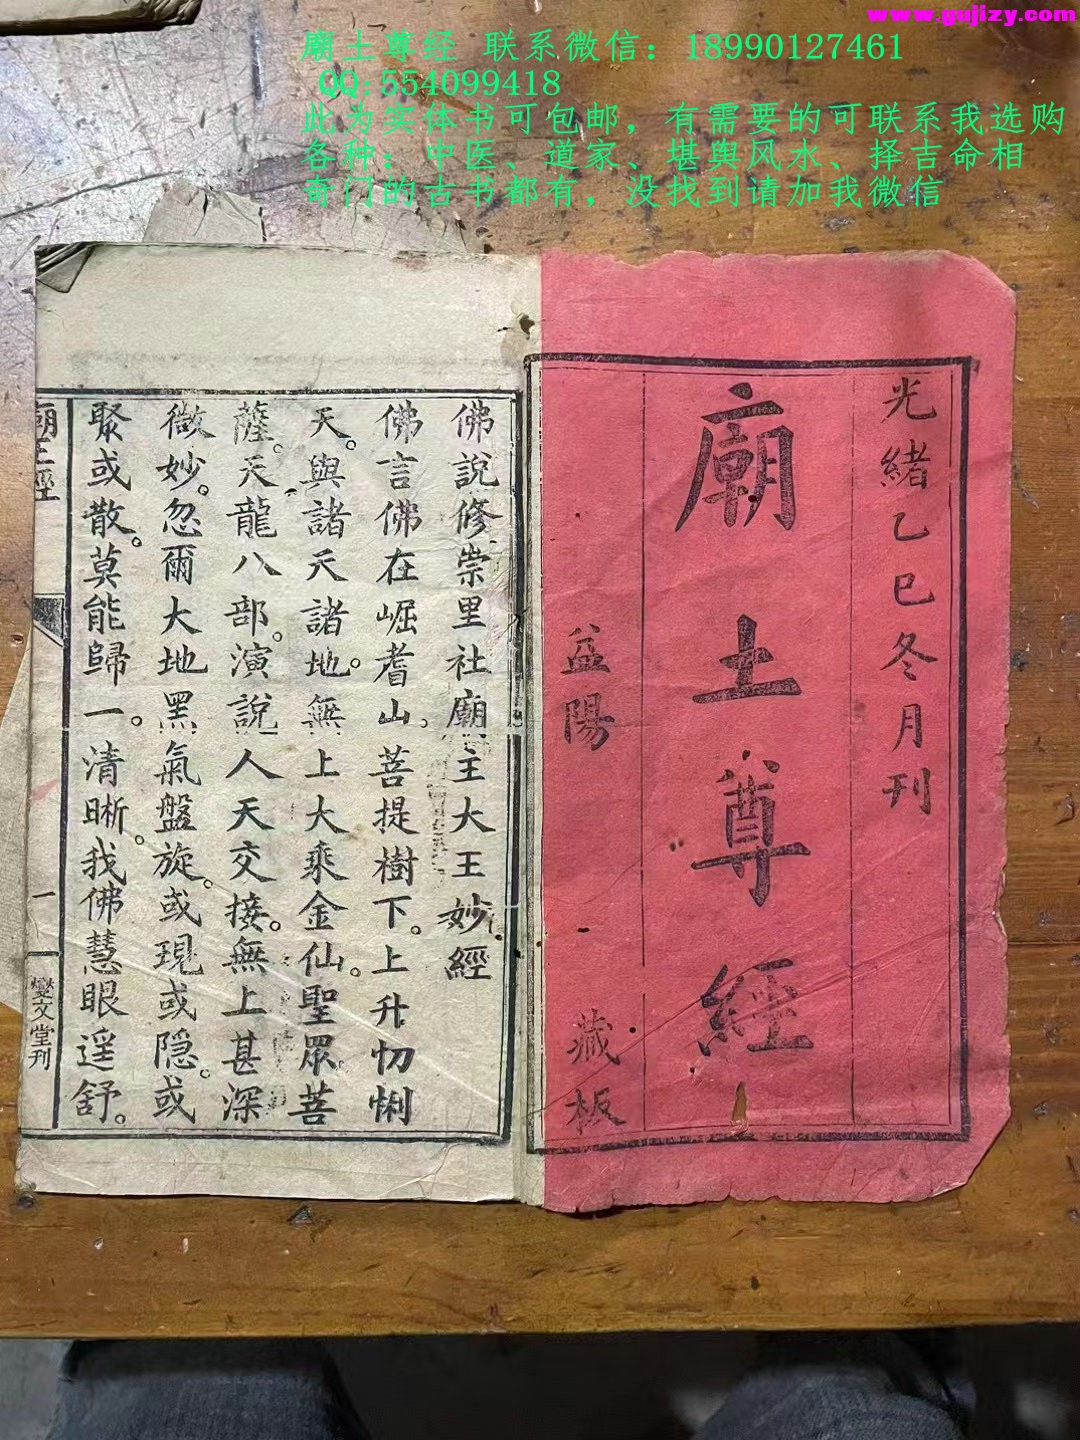 www.gujizy.com
廟土尊经 联系微信：18990127461
QQ:554099418
此为实体书可包邮，有需要的可联系我选购
各种：中医、道家、堪舆风水、择吉命相
奇门的古书都有，没找到请加我微信
光緒乙巳冬月刊
廟土尊經
益陽 藏板
佛說修崇里社廟主大王妙經
佛言佛在崛耆山。菩提樹下。上升忉悧
天。與諸天諸地。無上大乘金仙。聖眾。菩
薩。天龍八部。演說人天交接。無上甚深
微妙。忽爾大地黑氣盤旋。或現或隐。或
聚或散。莫能歸一。清晰。我佛慧眼遥舒。
廟土經
一
燮文堂刊